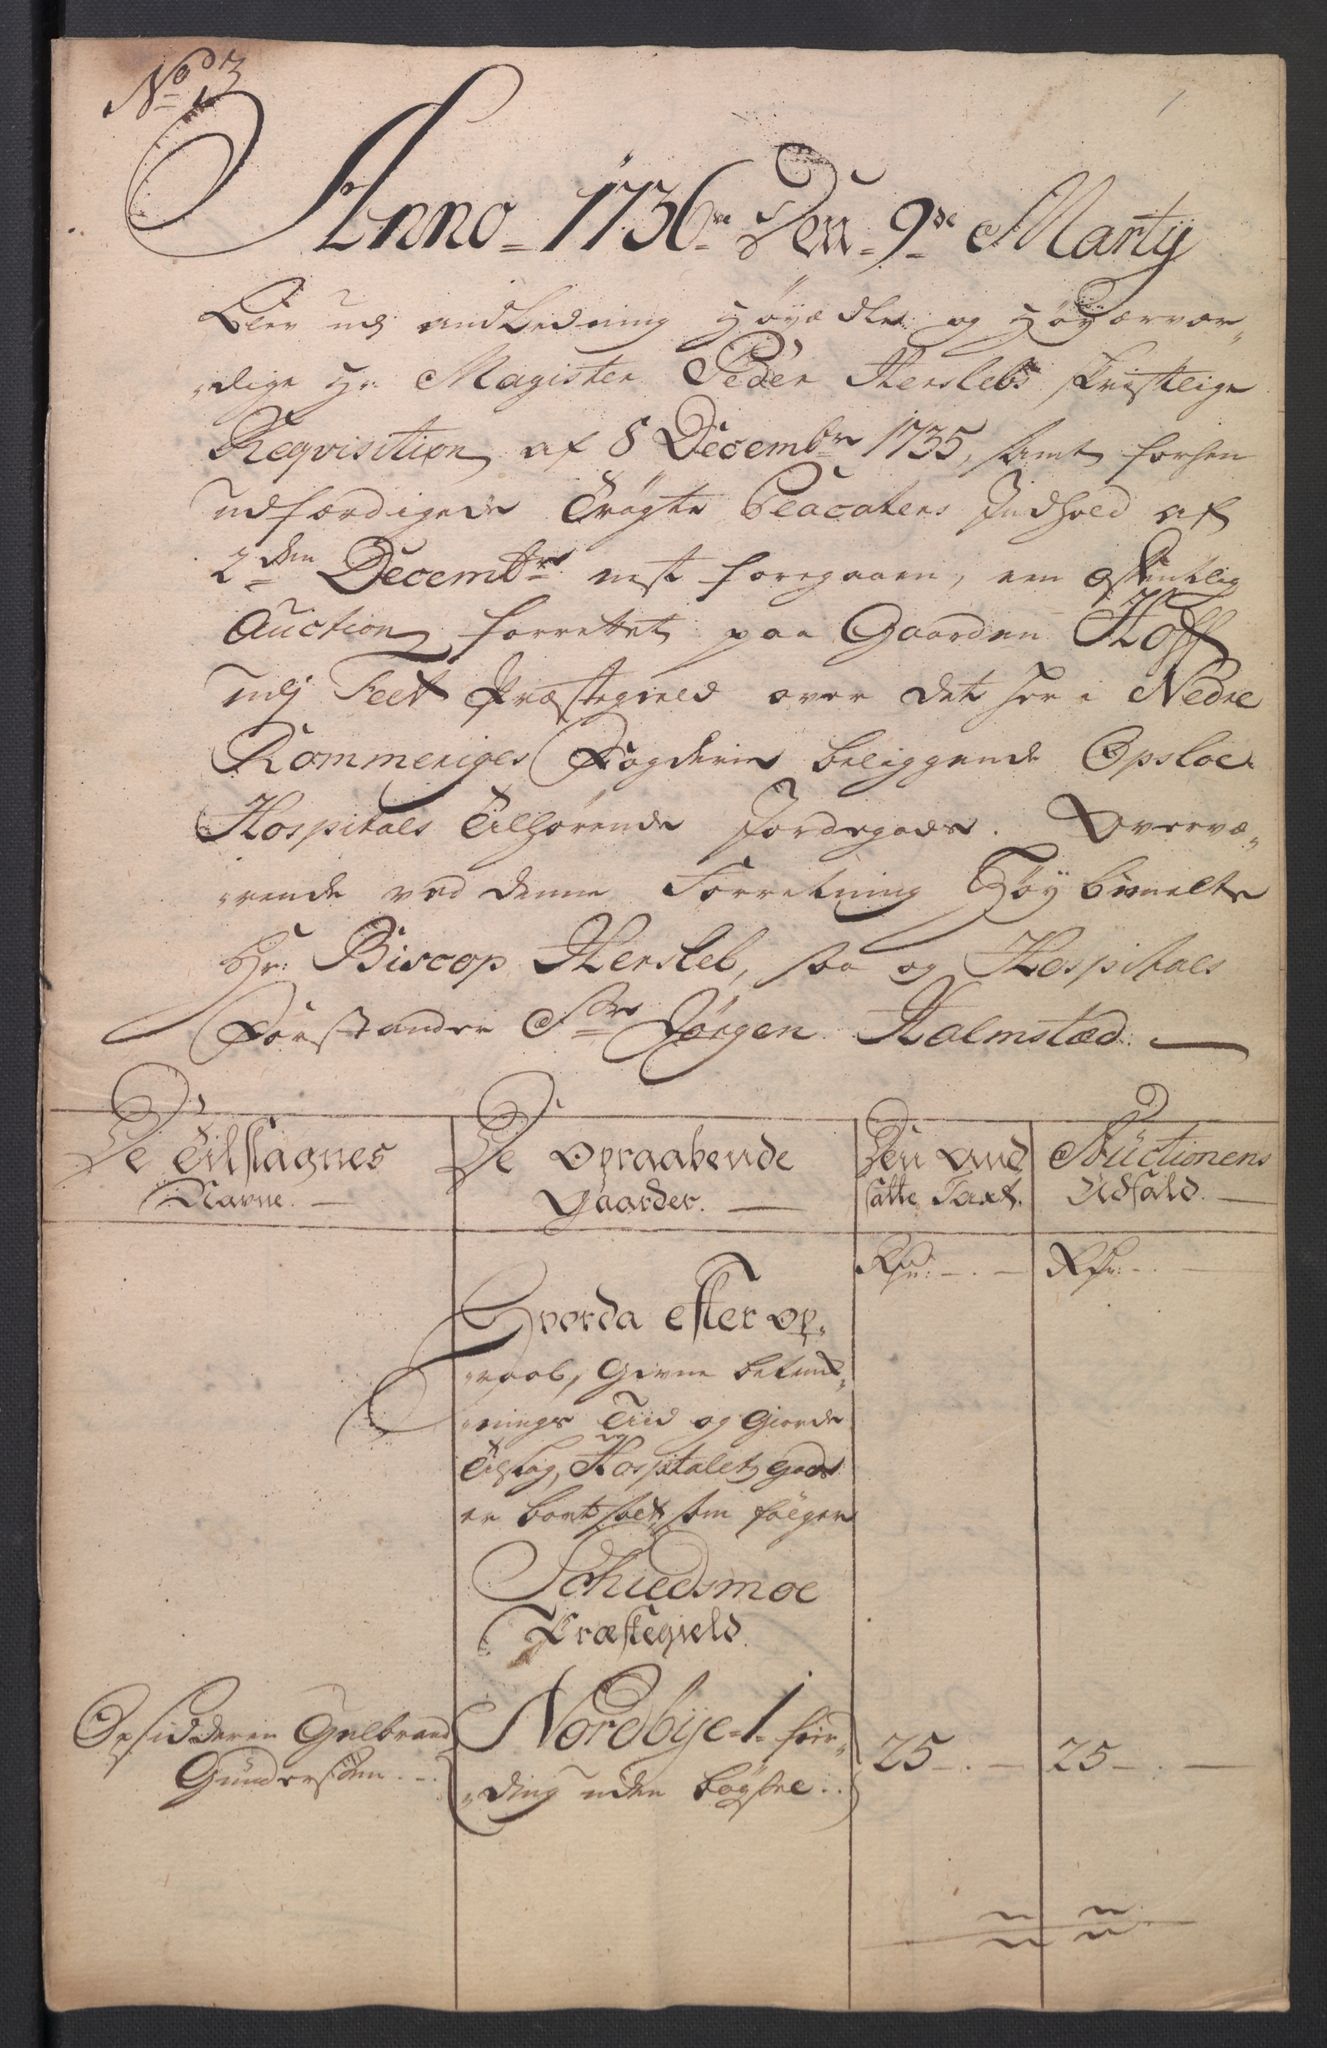 No 3
Anno 1736 Den 9de Martij
Blev udj andledning Høyædle og Høyærvær-
dige Hr: Magister Peder Herslebs skriftlige
Reqvisition af 8 Decembr 1735, samt forhen
udfærdigede trögte Placaters Indhold af
2den Decembr nest foregaaen, een offentlig
Auction forrettet paa Gaarden Hoff
udj Feet Præstegield over det her i Nedre
Rommeriges Fogderie beliggende Opsloe
Hospitals Tilhørende Jordegods. Overvæ-
rende ved denne Forretning Høybemelte
Hr: Biscop Hersleb, saa og Hospitals
Forstander Sr Jørgen Holmsted.
De Tilslagnes
Navne.
De Opraabende
Gaarder.
Den Und
satte Taxt.
Auctionens
Udfald.
Rdr:
Rdr:
Hvorda efter op-
raab, Givne betenk-
nings Tiid og Giorde
Tilslag, Hospitalets Gods
er bortsolt som følger
Schiedsmoe
Præstegield.
Opsidderen Gulbrand
Gundersen.
Nordbye 1 fier-
ding uden bøgsel
25
25